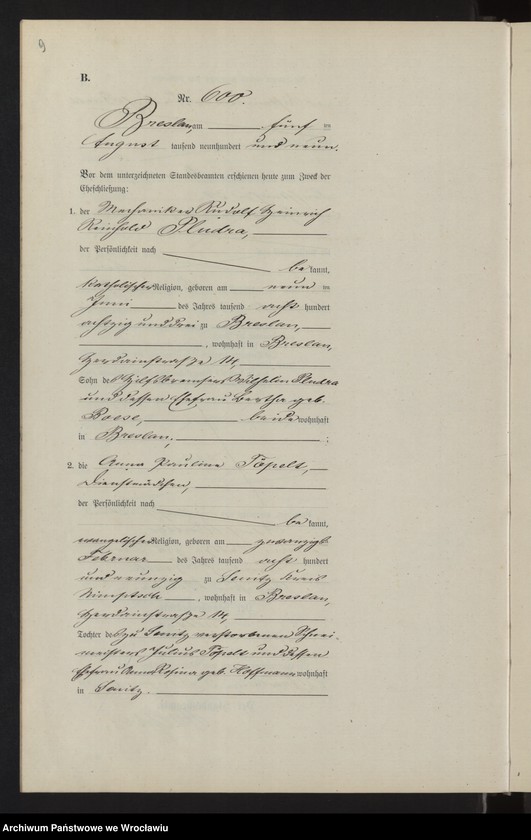 9
B.
Nr. 600.
Breslau, am fünf ten
August tausend neunhundert und neun.
Vor dem unterzeichneten Standesbeamten erschienen heute zum Zweck der
Eheschließung:
1. der Mechaniker Rudolf Heinrich
Reinhold Pludra,
der Persönlichkeit nach
be kannt,
katholischer Religion, geboren am neun ten
Juni des Jahres tausend acht hundert
achtzig und drei zu Breslau,
, wohnhaft in Breslau,
Herdainstraße 14,
Sohn des Hilfsbremsers Wilhelm Pludra
und dessen Ehefrau Bertha geb.
Boese, beide wohnhaft
in Breslau, ;
2. die Anna Pauline Töpelt,
Dienstmädchen,
der Persönlichkeit nach
be kannt,
evangelischer Religion, geboren am zwanzigst
Februar des Jahres tausend acht hundert
und neunzig zu Senitz Kreis
Nimptsch, wohnhaft in Breslau,
Herdainstraße 14,
Tochter des zu Senitz verstorbenen Schnei-
meisters Julius Töpelt und dessen
Ehefrau Anna Rosina geb. Hoffmann wohnhaft
in Senitz.
Archiwum Państwowe we Wrocławiu